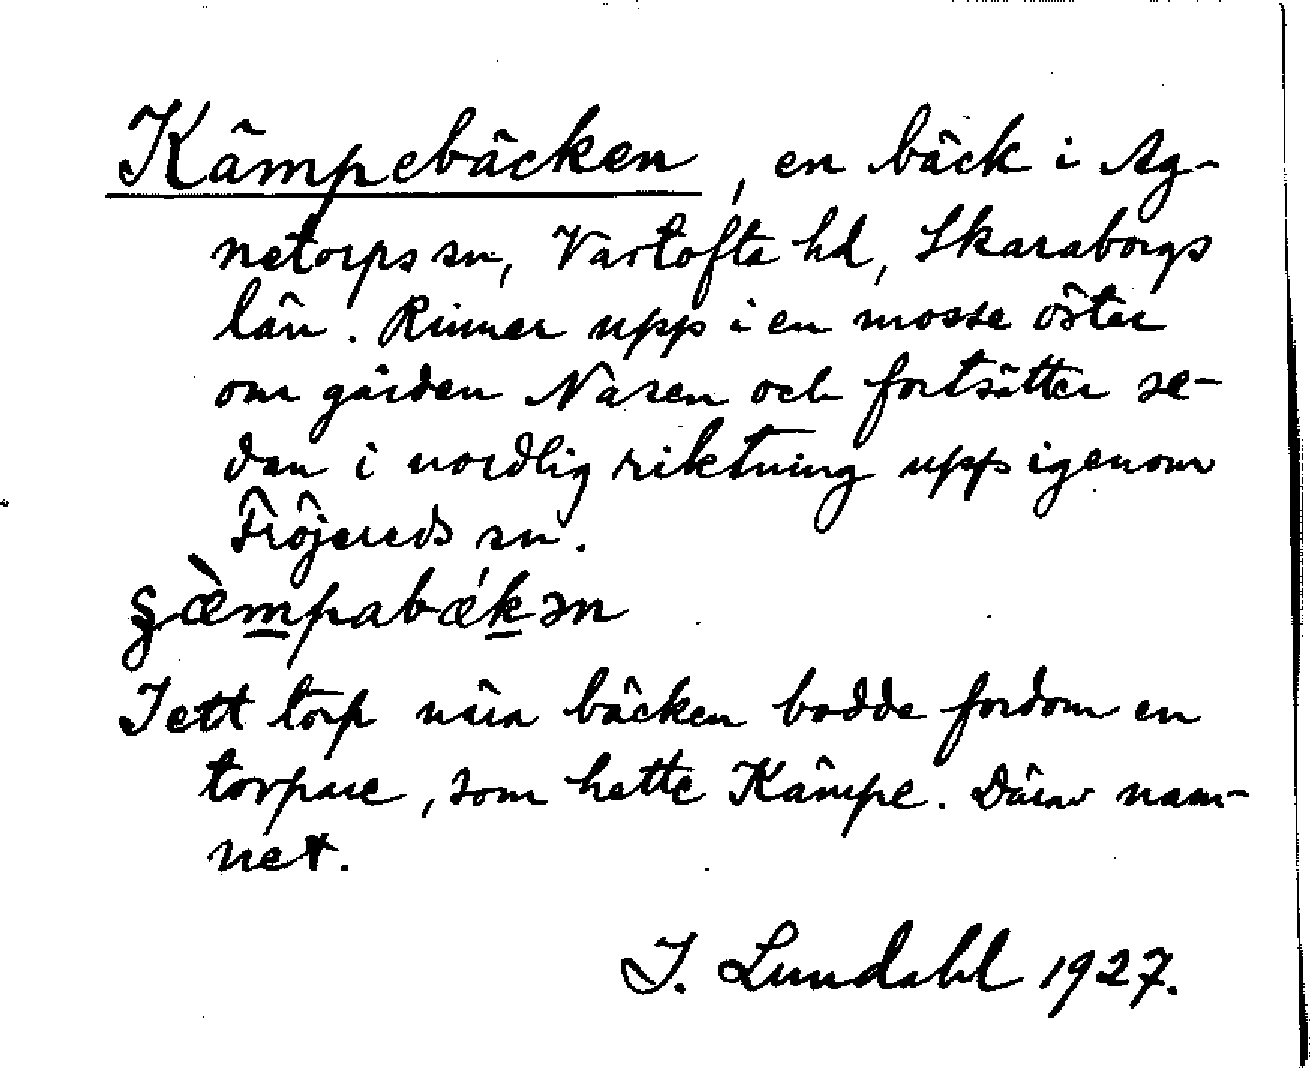 Kämpebäcken, en bäck i Ag-
netorps sn, Vartofta hd, Skaraborgs
län. Rinner upp i en mosse öster
om gården Naren och fortsätter se-
dan i nordlig riktning upp igenom
Fröjereds sn.
I ett torp nära bäcken bodde fordom en
torpare, som hette Kämpe. Därav nam-
net.
I. Lundahl 1927.